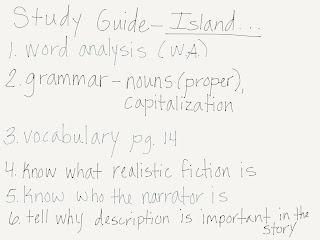 Study Guide - Island...
1. word analysis (W.A.)
2. grammar - nouns (proper),
capitalization
3. vocabulary pg. 14
4. Know what realistic fiction is
5. Know who the narrator is
6. tell why description is important in the
story